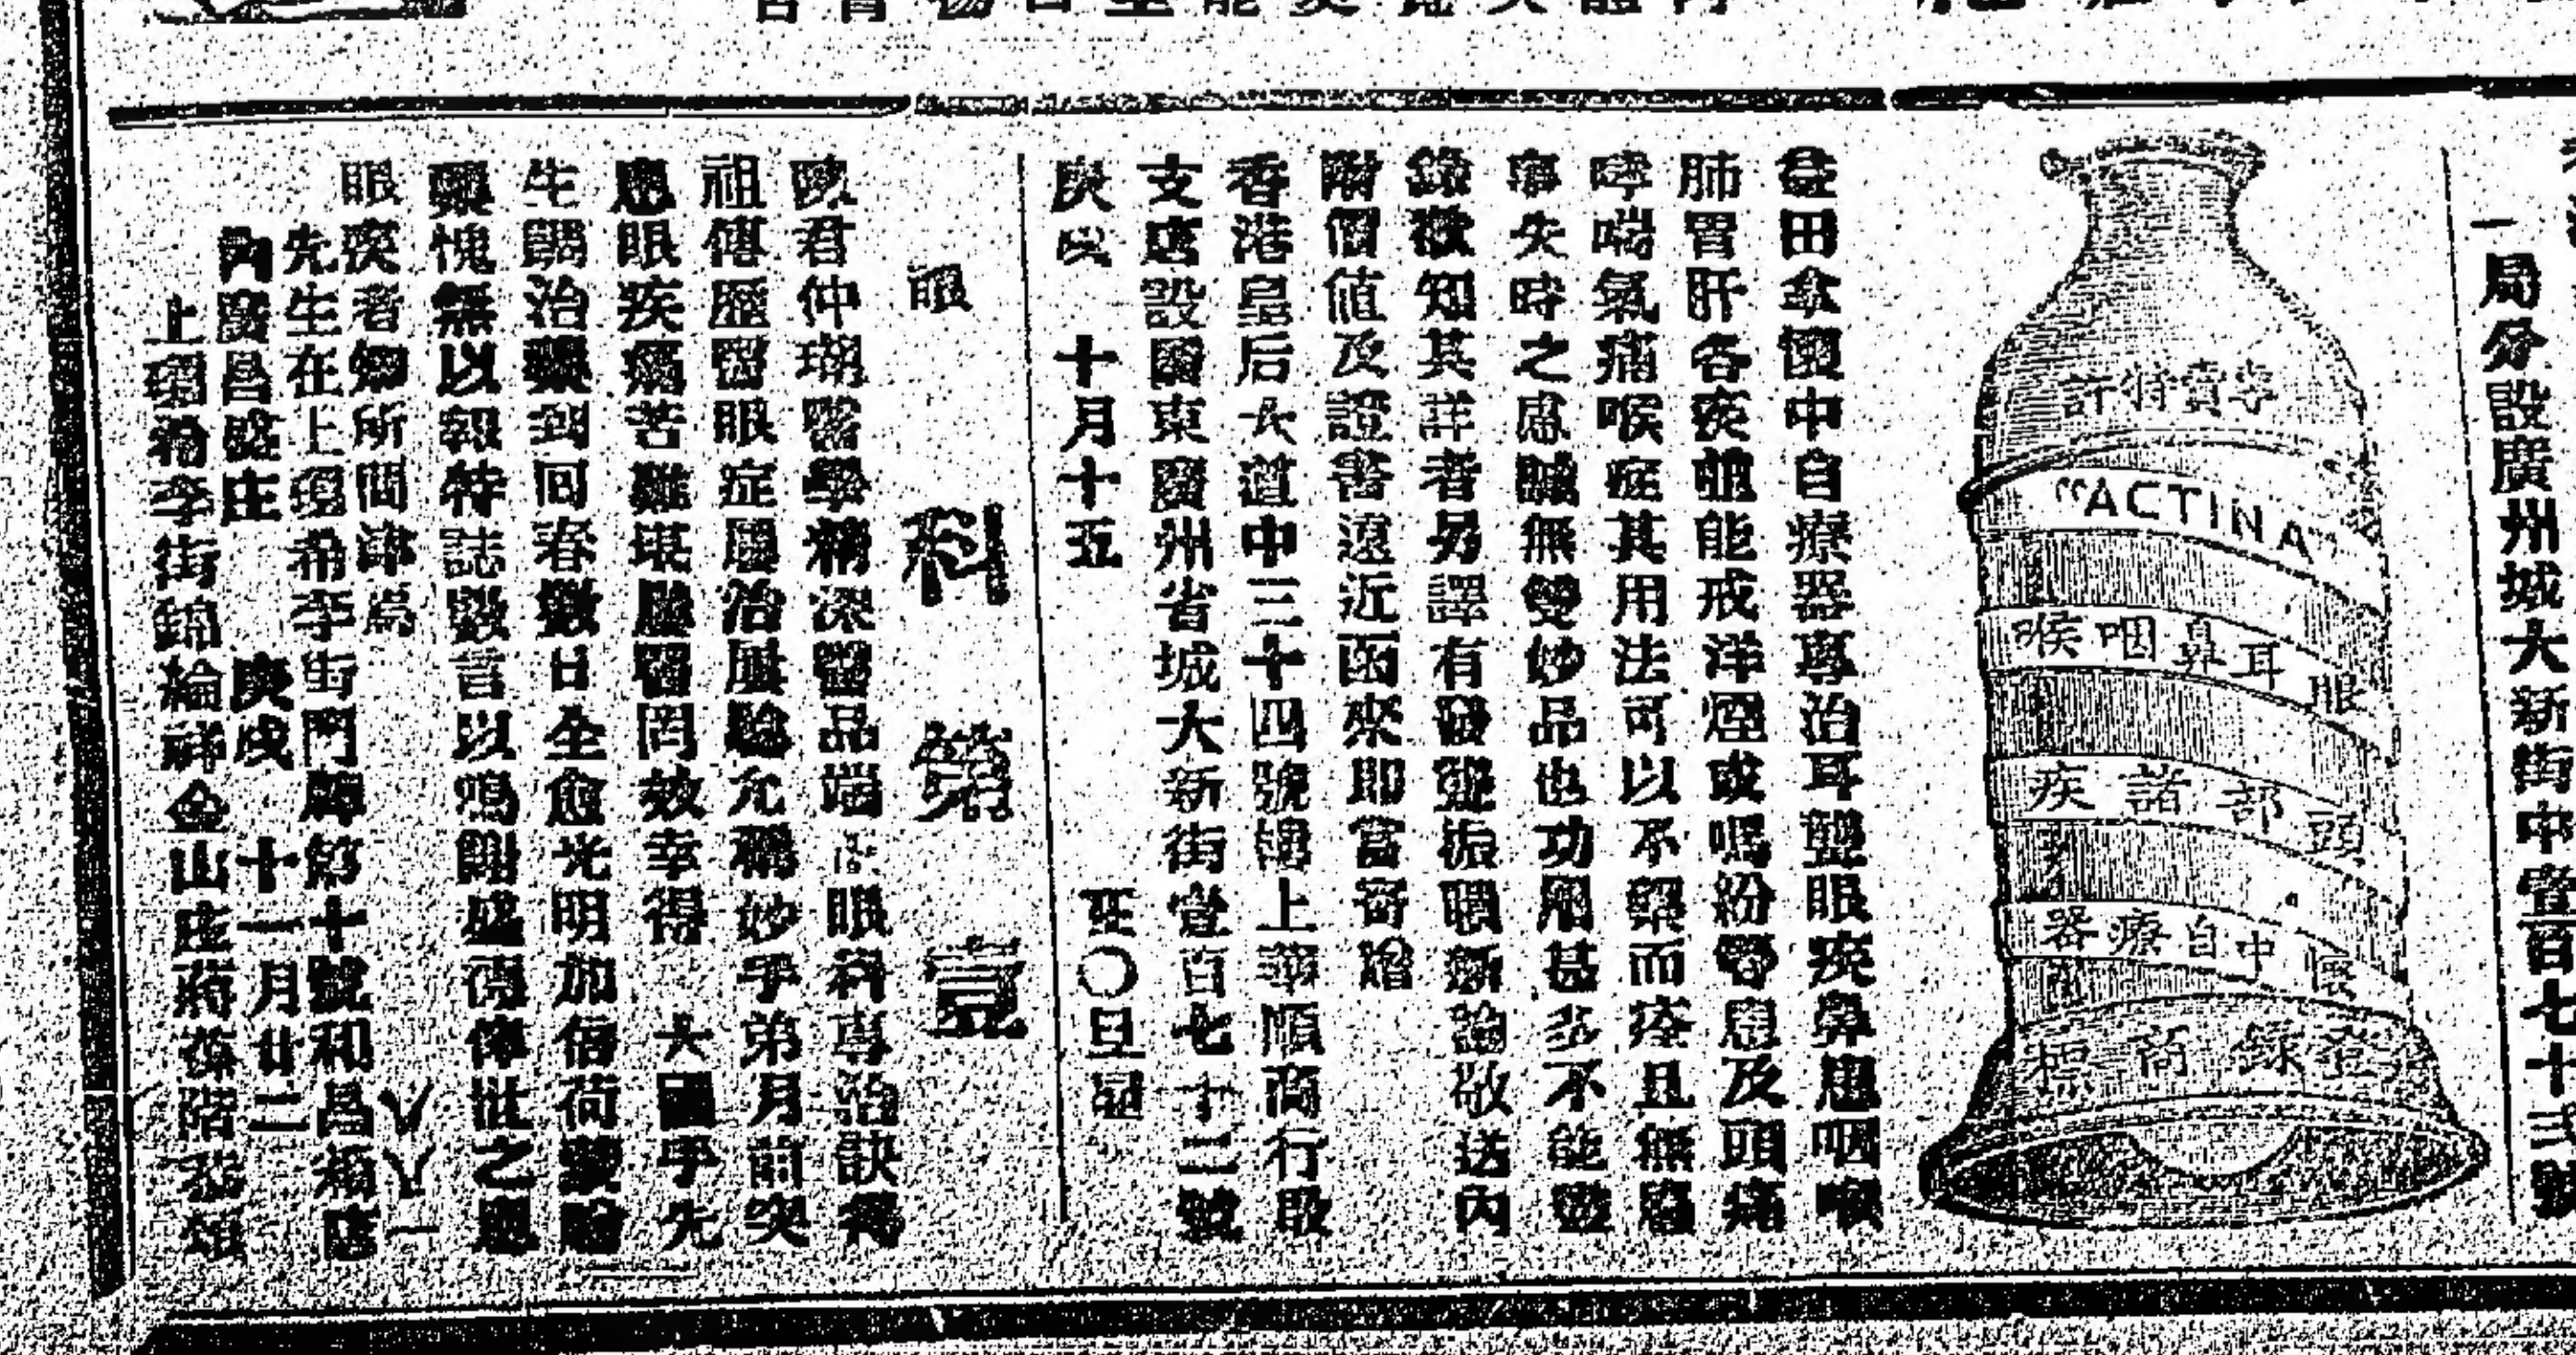 一局分設廣州城大新街中壹百七十弍號
許特賣專
"ACTINA"
喉咽鼻耳眼
疾諸部頭
器療自中懷
標商錄登
益田拿懷中自療器專治耳聾眼疾鼻患咽喉
肺胃肝各疾兼能戒洋煙或嗎紛等患及頭痛
哮喘氣痛喉症其用法可以不藥而痊且無廢
事失時之慮誠無雙妙品也功用甚多不能盡
錄欲知其詳者另譯有發聾振聵新論敬送內
附價值及證書遠近函來即當寄贈
香港皇后大道中三十四號樓上華順商行啟
支店設廣東廣州省城大新街壹百七十二號
庚戌 十月十五
眼科第壹
君仲瑚醫學精深醫品端 眼科專治訣得
祖傳歷醫眼症屢治屢驗允稱妙手弟月前突
患眼疾痛苦難堪屢醫罔效幸得 大國手先
生調治藥到回春數日全愈光明加倍荷蒙
愧無以報特誌數言以鳴謝盛德俾世之患
眼疾者知所問津焉
先生在上環希李街門牌第十號和昌
內廣昌盛庄 庚戌 十一月廿二
上環 李街錦綸祥金山庄